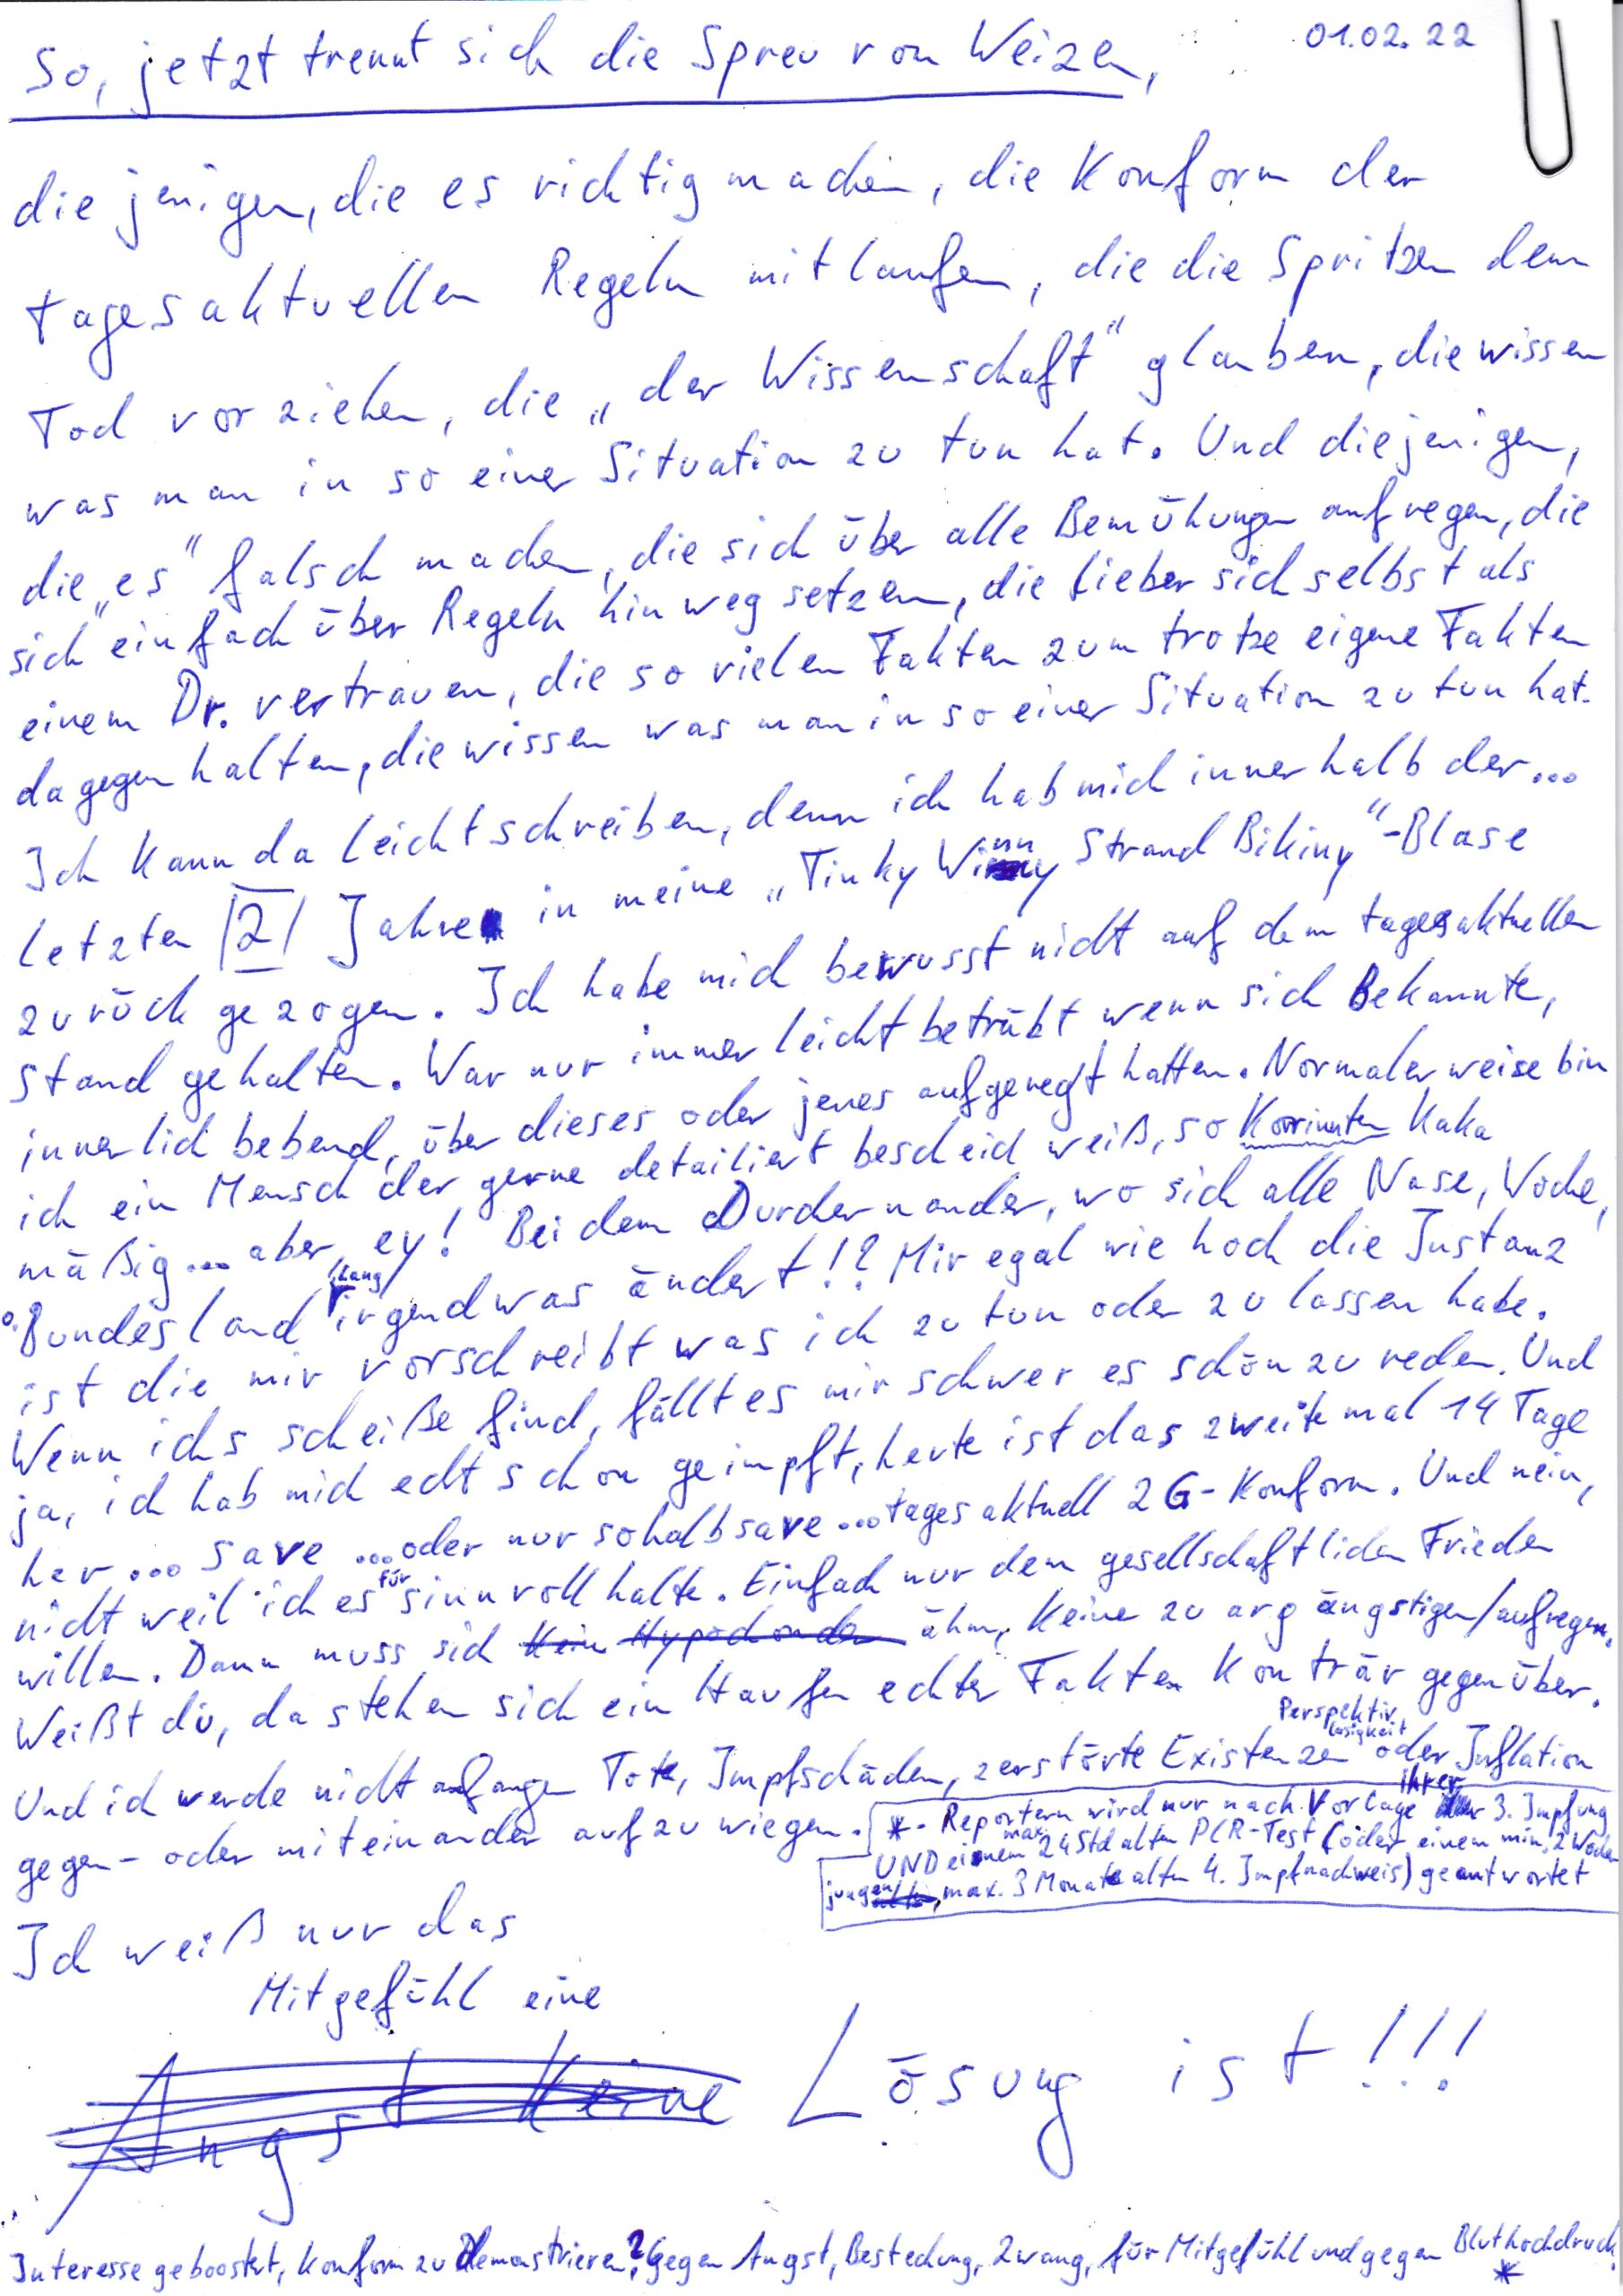 01.02.22
So, jetzt trennt sich die Spreu von Weizen,
die jenigen, die es richtig machen, die Konform der
tagesaktuellen Regeln mitlaufen, die die Spritzen dem
Tod vorziehen, die „der Wissenschaft" glauben, die wissen
was man in so einer Situation zu tun hat. Und diejenigen,
die „es" falsch machen, die sich über alle Bemühungen aufregen, die
sich einfach über Regeln hinweg setzen, die lieber sich selbst als
einem Dr. vertrauen, die so vielen Fakten zum trotze eigene Fakten
dagegen halten, die wissen was man in so einer Situation zu tun hat.
Ich kann da leicht schreiben, denn ich hab mich innerhalb der...
letzten |2| Jahre in meine „Tinky Winny Strand Bikiny"-Blase
zurück gezogen. Ich habe mich bewusst nicht auf dem tagesaktuellen
Stand gehalten. War nur immer leicht betrübt wenn sich Bekannte,
innerlich bebend, über dieses oder jenes aufgeregt hatten. Normalerweise bin
ich ein Mensch der gerne detailiert bescheid weiß, so Korrinnten Kaka
mäßig... aber, ey! Bei dem Durchernander, wo sich alle Nase, Woche,
o. Bundesland lang irgendwas ändert!!? Mir egal wie hoch die Instanz
ist die mir vorschreibt was ich zu tun oder zu lassen habe.
Wenn ichs scheiße find, fällt es mir schwer es schön zu reden. Und
ja, ich hab mich echt schon geimpft, heute ist das zweite mal 14 Tage
her... save ...oder nur so halb save ...tagesaktuell 2G-Konform. Und nein,
nicht weil ich es für sinnvoll halte. Einfach nur dem gesellschaftlichen Frieden
willen. Dann muss sich kein Hypochonder ähm, keine zu arg ängstigen/aufregen.
Weißt du, da stehen sich ein Haufen echter Fakten konträr gegenüber.
Und ich werde nicht anfangen Tote, Impfschäden, zerstörte Existenzen Perspektivlosigkeit oder Inflation
gegen- oder miteinander aufzuwiegen.
*. Reportern wird nur nach Vorlage ihrer 3. Impfung
UND einem max. 24 Std alten PCR-Test (oder einem min. 2 Wochen
jungen, max. 3 Monate alten 4. Impfnachweis) geantwortet
Ich weiß nur das
Mitgefühl eine
Angst keine Lösung ist!!!
Interesse geboostert, konform zu Demonstrieren? Gegen Angst, Bestechung, Zwang, für Mitgefühl und gegen Bluthochdruck.
*